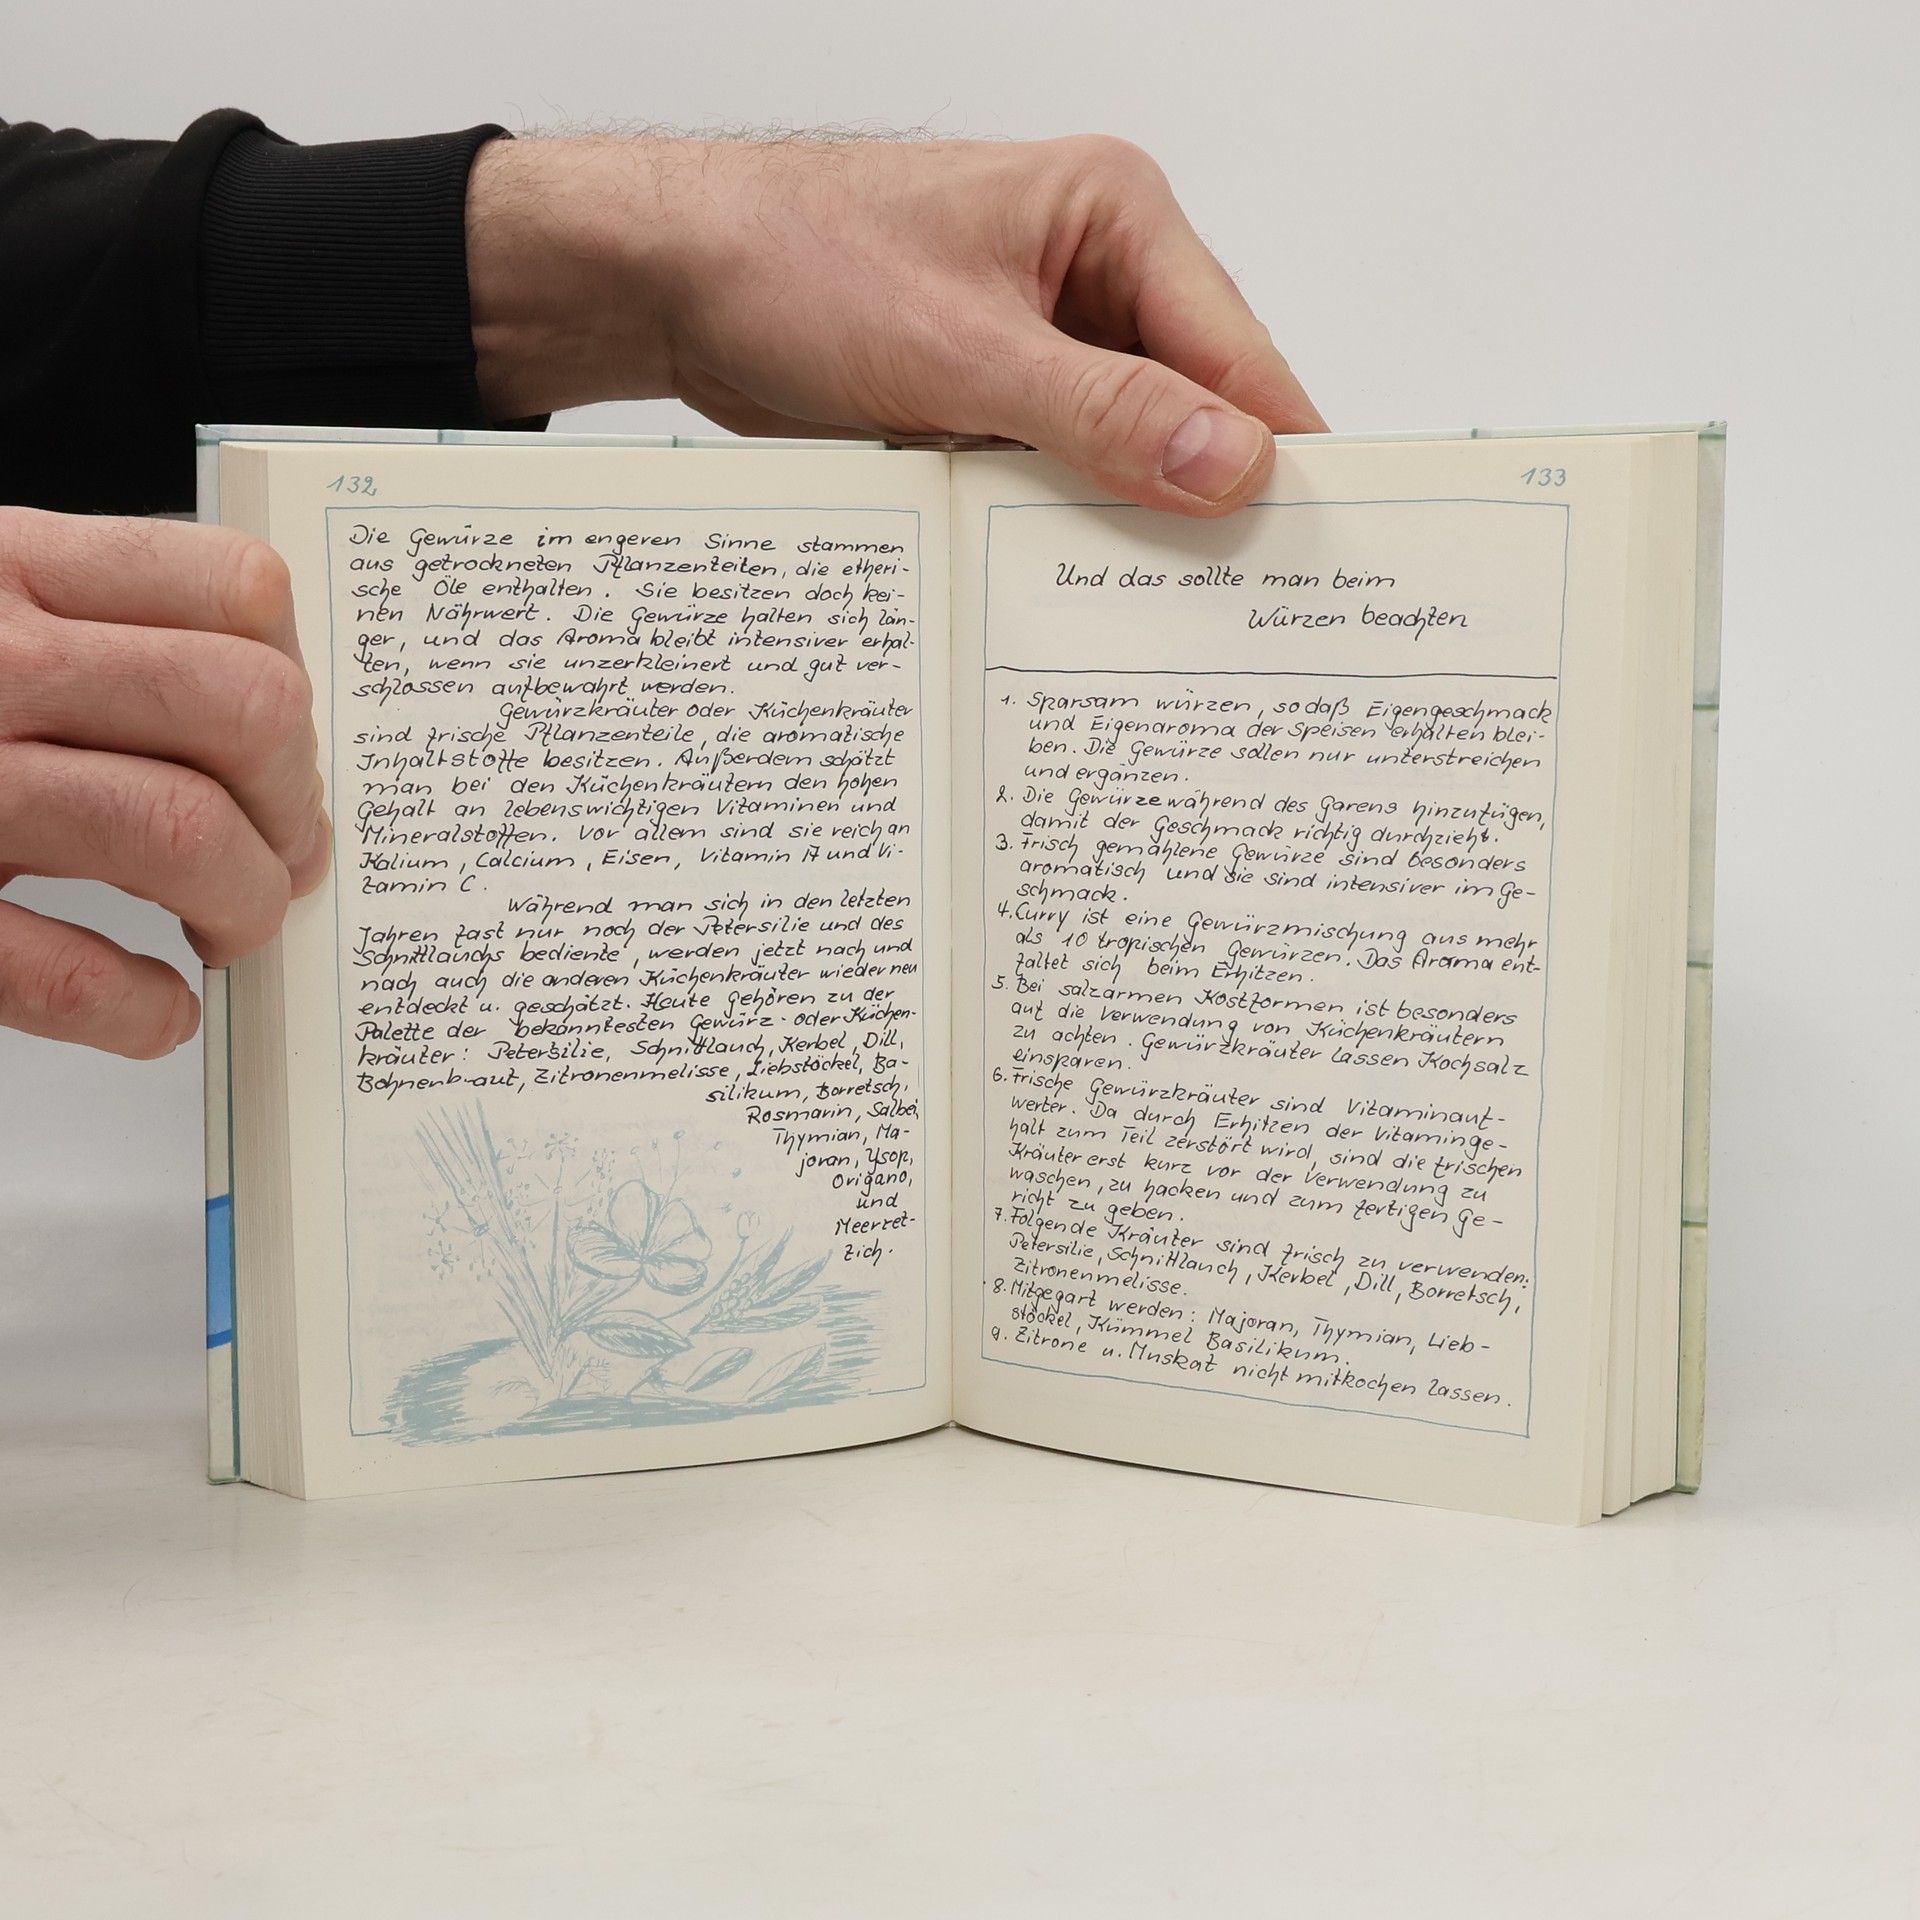 132
Die Gewürze im engeren Sinne stammen
aus getrockneten Pflanzenteilen, die etheri-
sche Öle enthalten. Sie besitzen doch kei-
nen Nährwert. Die Gewürze halten sich län-
ger, und das Aroma bleibt intensiver erhal-
ten, wenn sie unzerkleinert und gut ver-
schlossen aufbewahrt werden.
Gewürzkräuter oder Küchenkräuter
sind frische Pflanzenteile, die aromatische
Inhaltstoffe besitzen. Außerdem schätzt
man bei den Küchenkräutern den hohen
Gehalt an lebenswichtigen Vitaminen und
Mineralstoffen. Vor allem sind sie reich an
Kalium, Calcium, Eisen, Vitamin A und Vi-
tamin C.
Während man sich in den letzten
Jahren fast nur noch der Petersilie und des
Schnittlauchs bediente, werden jetzt nach und
nach auch die anderen Küchenkräuter wieder neu
entdeckt u. geschätzt. Heute gehören zu der
Palette der bekanntesten Gewürz- oder Küchen-
kräuter: Petersilie, Schnittlauch, Kerbel, Dill,
Bohnenkraut, Zitronenmelisse, Liebstöckel, Ba-
silikum, Borretsch,
Rosmarin, Salbei,
Thymian, Ma-
joran, Ysop,
Origano,
und
Meerret-
tich.
133
Und das sollte man beim
Würzen beachten
1. Sparsam würzen, so daß Eigengeschmack
und Eigenaroma der Speisen erhalten blei-
ben. Die Gewürze sollen nur unterstreichen
und ergänzen.
2. Die Gewürze während des Garens hinzufügen,
damit der Geschmack richtig durchzieht.
3. Frisch gemahlene Gewürze sind besonders
aromatisch und sie sind intensiver im Ge-
schmack.
4. Curry ist eine Gewürzmischung aus mehr
als 10 tropischen Gewürzen. Das Aroma ent-
faltet sich beim Erhitzen.
5. Bei salzarmen Kostformen ist besonders
auf die Verwendung von Küchenkräutern
zu achten. Gewürzkräuter lassen Kochsalz
einsparen.
6. Frische Gewürzkräuter sind Vitaminauf-
werter. Da durch Erhitzen der Vitaminge-
halt zum Teil zerstört wird, sind die frischen
Kräuter erst kurz vor der Verwendung zu
waschen, zu hacken und zum fertigen Ge-
richt zu geben.
7. Folgende Kräuter sind frisch zu verwenden:
Petersilie, Schnittlauch, Kerbel, Dill, Borretsch,
Zitronenmelisse.
8. Mitgegart werden: Majoran, Thymian, Lieb-
stöckel, Kümmel Basilikum.
9. Zitrone u. Muskat nicht mitkochen lassen.